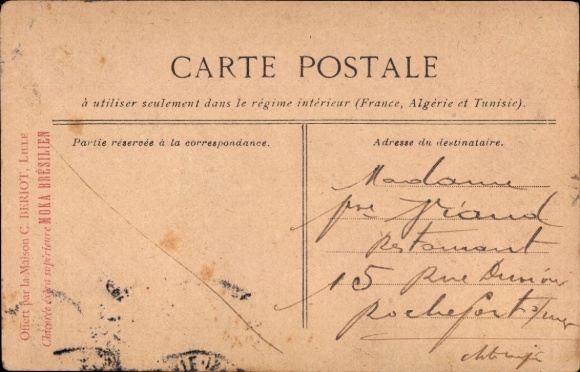 CARTE POSTALE
à utiliser seulement dans le régime intérieur (France, Algérie et Tunisie).
Partie réservée à la correspondance.
Adresse du destinataire.
Offert par la Maison C. BERIOT, LILLE
Chicorée extra supérieure MOKA BRÉSILIEN
Madame
restaurant
15 rue
Rochefort